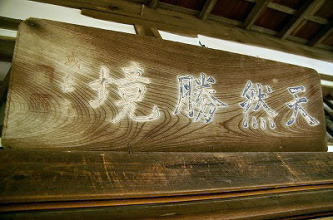 天然勝境